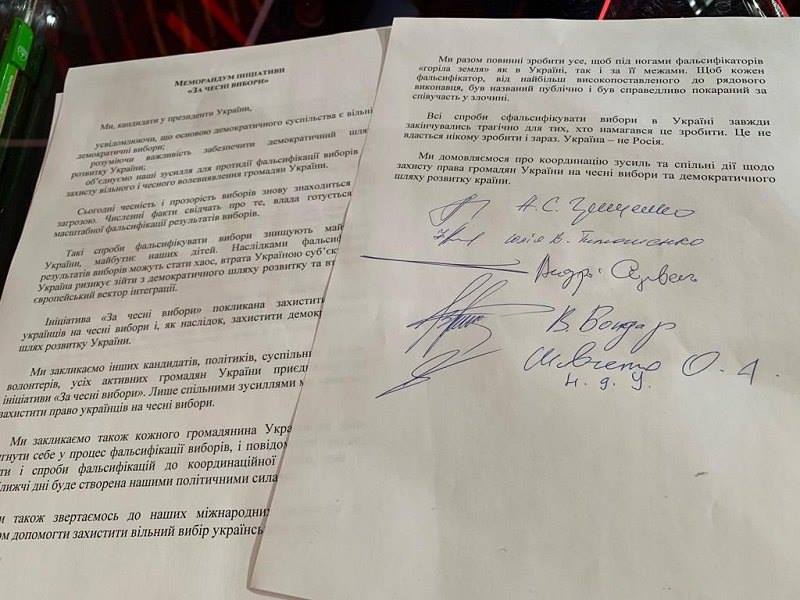 МЕМОРАНДУМ ІНІЦІАТИВИ
«ЗА ЧЕСНІ ВИБОРИ»
Ми, кандидати у президенти України,
усвідомлюючи, що основою демократичного суспільства є вільні
демократичні вибори;
розуміючи важливість забезпечити демократичний шлях
розвитку України;
об'єднуємо наші зусилля для протидії фальсифікації виборів
захисту вільного і чесного волевиявлення громадян України.
Сьогодні чесність і прозорість виборів знову знаходиться
загрозою. Численні факти свідчать про те, влада готується
масштабної фальсифікації результатів виборів.
Такі спроби фальсифікувати вибори знищують май
України, майбутнє наших дітей. Наслідками фальсиф
результатів виборів можуть стати хаос, втрата Україною суб'єк
Україна ризикує зійти з демократичного шляху розвитку та вт
європейський вектор інтеграції.
Ініціатива «За чесні вибори» покликана захистити
українців на чесні вибори і, як наслідок, захистити демок
шлях розвитку України.
Ми закликаємо інших кандидатів, політиків, суспільни
волонтерів, усіх активних громадян України приєд
ініціативи «За чесні вибори». Лише спільними зусиллями м
захистити право українців на чесні вибори.
Ми закликаємо також кожного громадянина Укра
гнути себе у процес фальсифікації виборів, і повідом
ти і спроби фальсифікацій до координаційної
лижчі дні буде створена нашими політичними сила
и також звертаємось до наших міжнародних
ом допомогти захистити вільний вибір українсь
Ми разом повинні зробити усе, щоб під ногами фальсифікаторів
«горіла земля» як в Україні, так і за її межами. Щоб кожен
фальсифікатор, від найбільш високопоставленого до рядового
виконавця, був названий публічно і був справедливо покараний за
співучасть у злочині.
Всі спроби сфальсифікувати вибори в Україні завжди
закінчувались трагічно для тих, хто намагався це зробити. Це не
вдасться нікому зробити і зараз. Україна – не Росія.
Ми домовляємося про координацію зусиль та спільні дії щодо
захисту права громадян України на чесні вибори та демократичного
шляху розвитку країни.
А.С. Гриценко
Юлія В. Тимошенко
Андрій Садовий
В. Бондар
Шевченко О. Л.